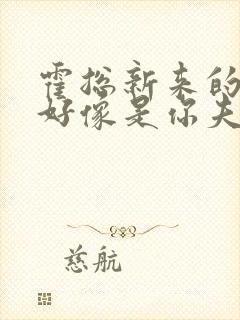 霍总新来的
好像是你夫
慈航